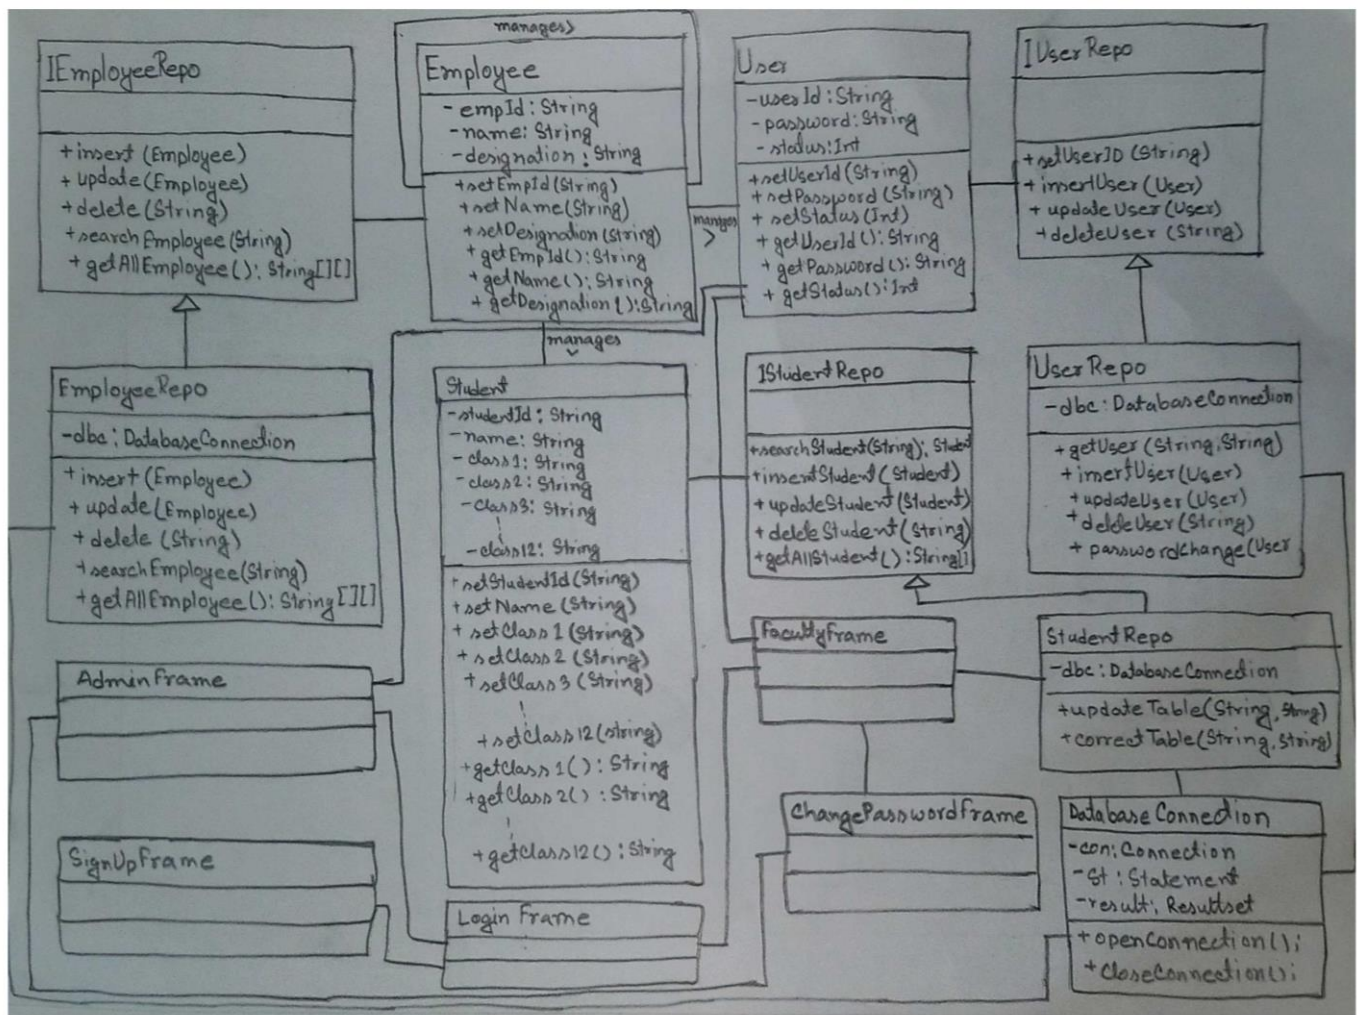 manages>
IEmployeeRepo
+insert (Employee)
+ update(Employee)
+delete (String)
+searchEmployee(String)
+ getAllEmployee(): String[][]
Employee
- empId: String
-name: String
-designation: String
+setEmpId(String)
+setName(String)
+setDesignation(String)
+getEmpId(): String
+getName(): String
+ getDesignation():String
manges
>
User
-userId: String
-password: String
- status: Int
+setUserId(String)
+ setPassword (String)
+ setStatus (Int)
+ getUserId(): String
+ getPassword(): String
+ getStatus(): Int
IUserRepo
+setUserID (String)
+insertUser (User)
+ updateUser (User)
+deleteUser (String)
manages
EmployeeRepo
-dbc: DatabaseConnection
+insert (Employee)
+ update(Employee)
+ delete (String)
+searchEmployee(String)
+getAllEmployee(): String[][]
Student
-studentId: String
-name: String
- class1: String
-class2: String
- class3: String
- class12: String
+setStudentId(String)
+setName (String)
+ setClass1 (String)
+ setClass2 (String)
+setClass3 (String)
+setClass12 (string)
+getClass1(): String
+getClass2(): String
+getClass12(): String
IStudentRepo
+searchStudent(String): Student
+insertStudent (Student)
+updateStudent(Student)
+deleteStudent (String)
+getAllStudent(): String[]
UserRepo
-dbc: DatabaseConnection
+getUser (String, String)
+insertUser(User)
+updateUser(User)
+deleteUser(String)
+ passwordChange(User
AdminFrame
FacultyFrame
StudentRepo
-dbc: DatabaseConnection
+updateTable(String, String)
+correctTable(String, String)
SignUpFrame
Login Frame
ChangePasswordFrame
DatabaseConnection
-con: Connection
-St: Statement
-result: Resultset
+openConnection();
+CloseConnection();